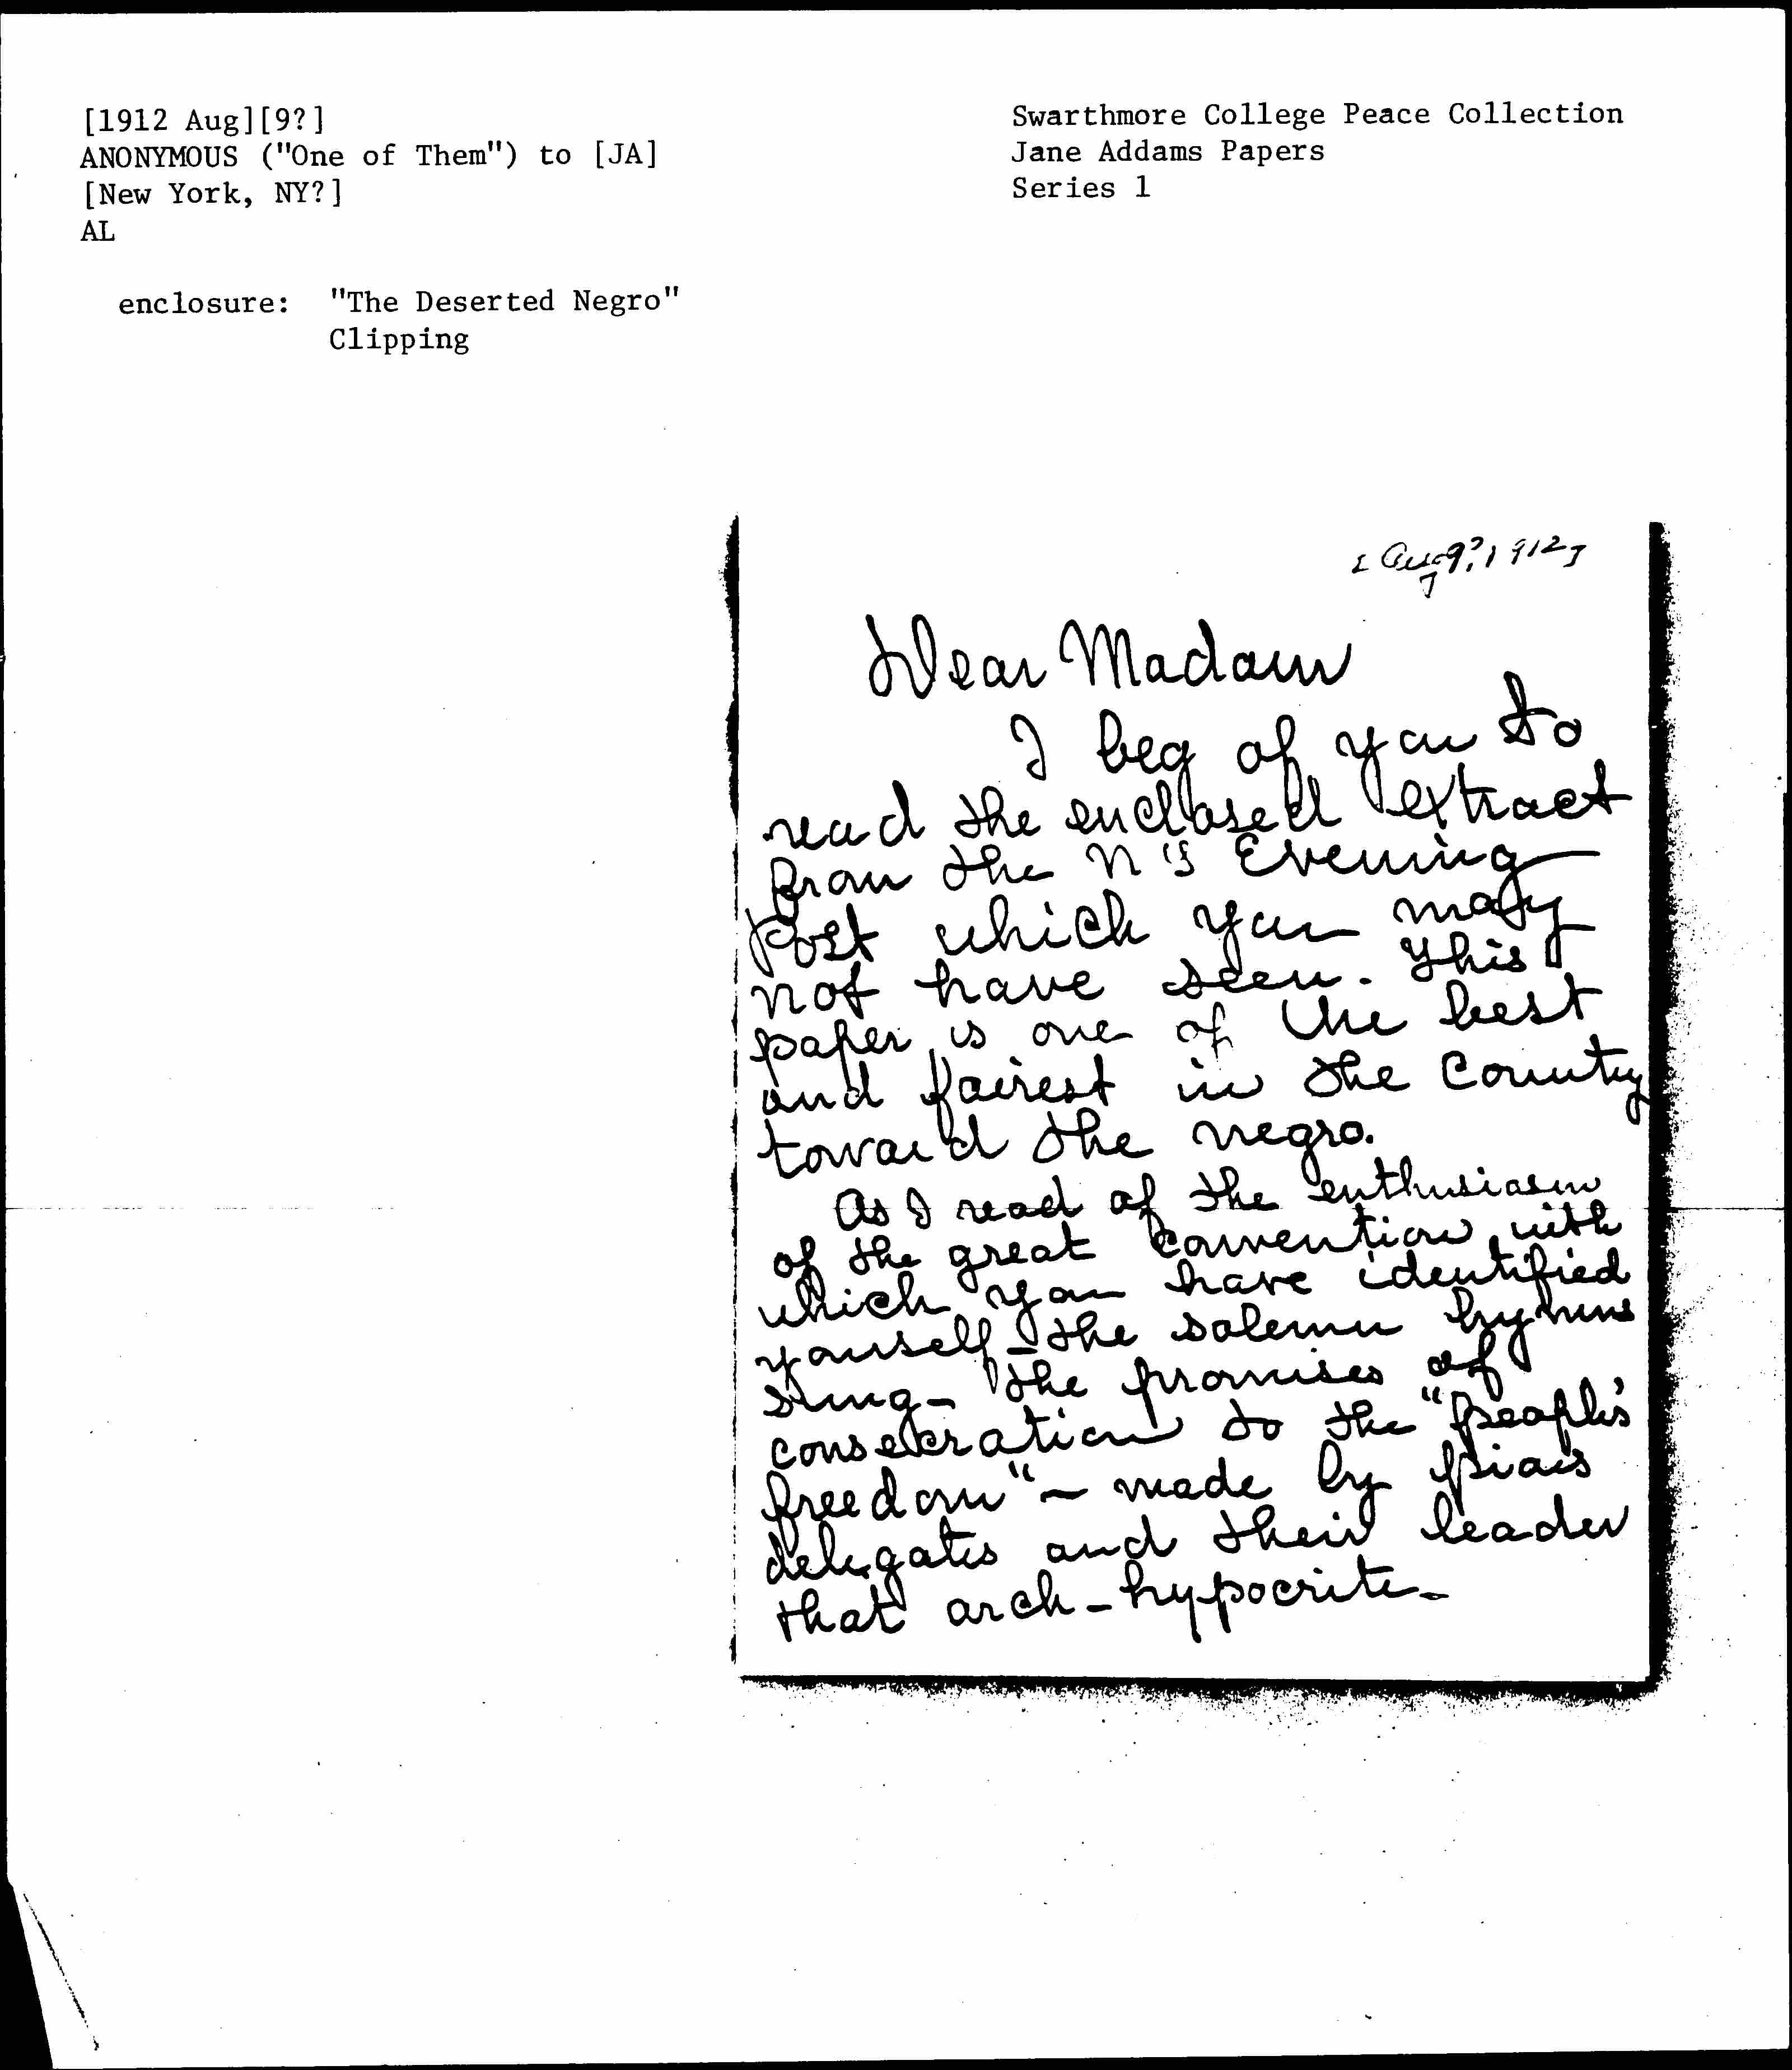 [1912 Aug][9?]
ANONYMOUS ("One of Them") to [JA]
[New York, NY?]
AL
enclosure: "The Deserted Negro"
Clipping
Swarthmore College Peace Collection
Jane Addams Papers
Series 1
[Aug 9?, 1912]
Dear Madam
I beg of you to
read the enclosed extract
from the N Y Evening
Post which you may
not have seen. This
paper is one of the best
and fairest in the country
toward the negro.
As I read of the enthusiasm
of the great convention with
which you have identified
yourself - the solemn hymns
sung - the promises of
consecration to the "people's
freedom" - made by pious
delegates and their leader
that arch-hypocrite -